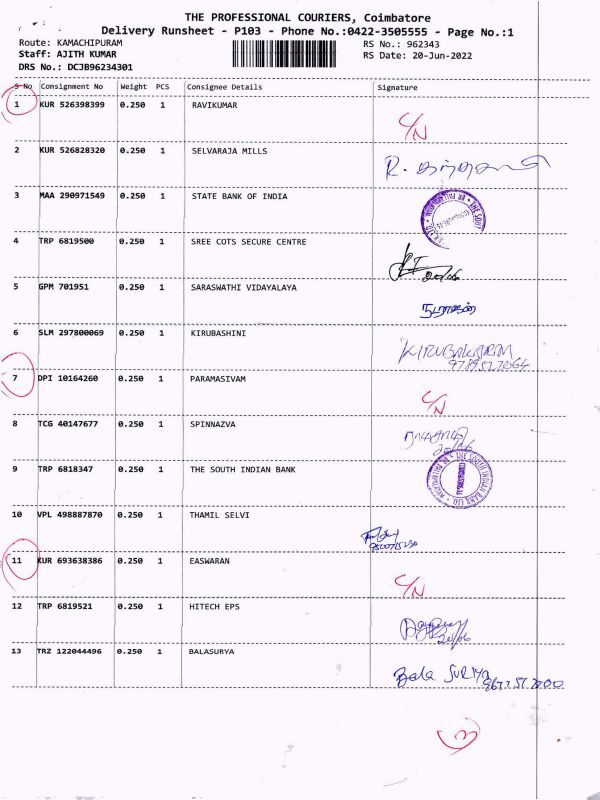 THE PROFESSIONAL COURIERS, Coimbatore
Delivery Runsheet - P103 - Phone No.:0422-3505555 - Page No.:1
Route: KAMACHIPURAM RS No.: 962343
Staff: AJITH KUMAR RS Date: 20-Jun-2022
DRS No.: DCJB96234301
S No Consignment No Weight PCS Consignee Details Signature
1 KUR 526398399 0.250 1 RAVIKUMAR
C/N
2 KUR 526828320 0.250 1 SELVARAJA MILLS
R.
3 MAA 290971549 0.250 1 STATE BANK OF INDIA
4 TRP 6819500 0.250 1 SREE COTS SECURE CENTRE
20/06
5 GPM 701951 0.250 1 SARASWATHI VIDAYALAYA
நடராஜன்
6 SLM 297800069 0.250 1 KIRUBASHINI
KIRUBAKARAN
7 DPI 10164260 0.250 1 PARAMASIVAM
C/N
8 TCG 40147677 0.250 1 SPINNAZVA
20/06
9 TRP 6818347 0.250 1 THE SOUTH INDIAN BANK
THE SOUTH INDIAN BANK LTD.
10 VPL 498887870 0.250 1 THAMIL SELVI
11 KUR 693638386 0.250 1 EASWARAN
C/N
12 TRP 6819521 0.250 1 HITECH EPS
20/06
13 TRZ 122044496 0.250 1 BALASURYA
Bala SURIYA
3